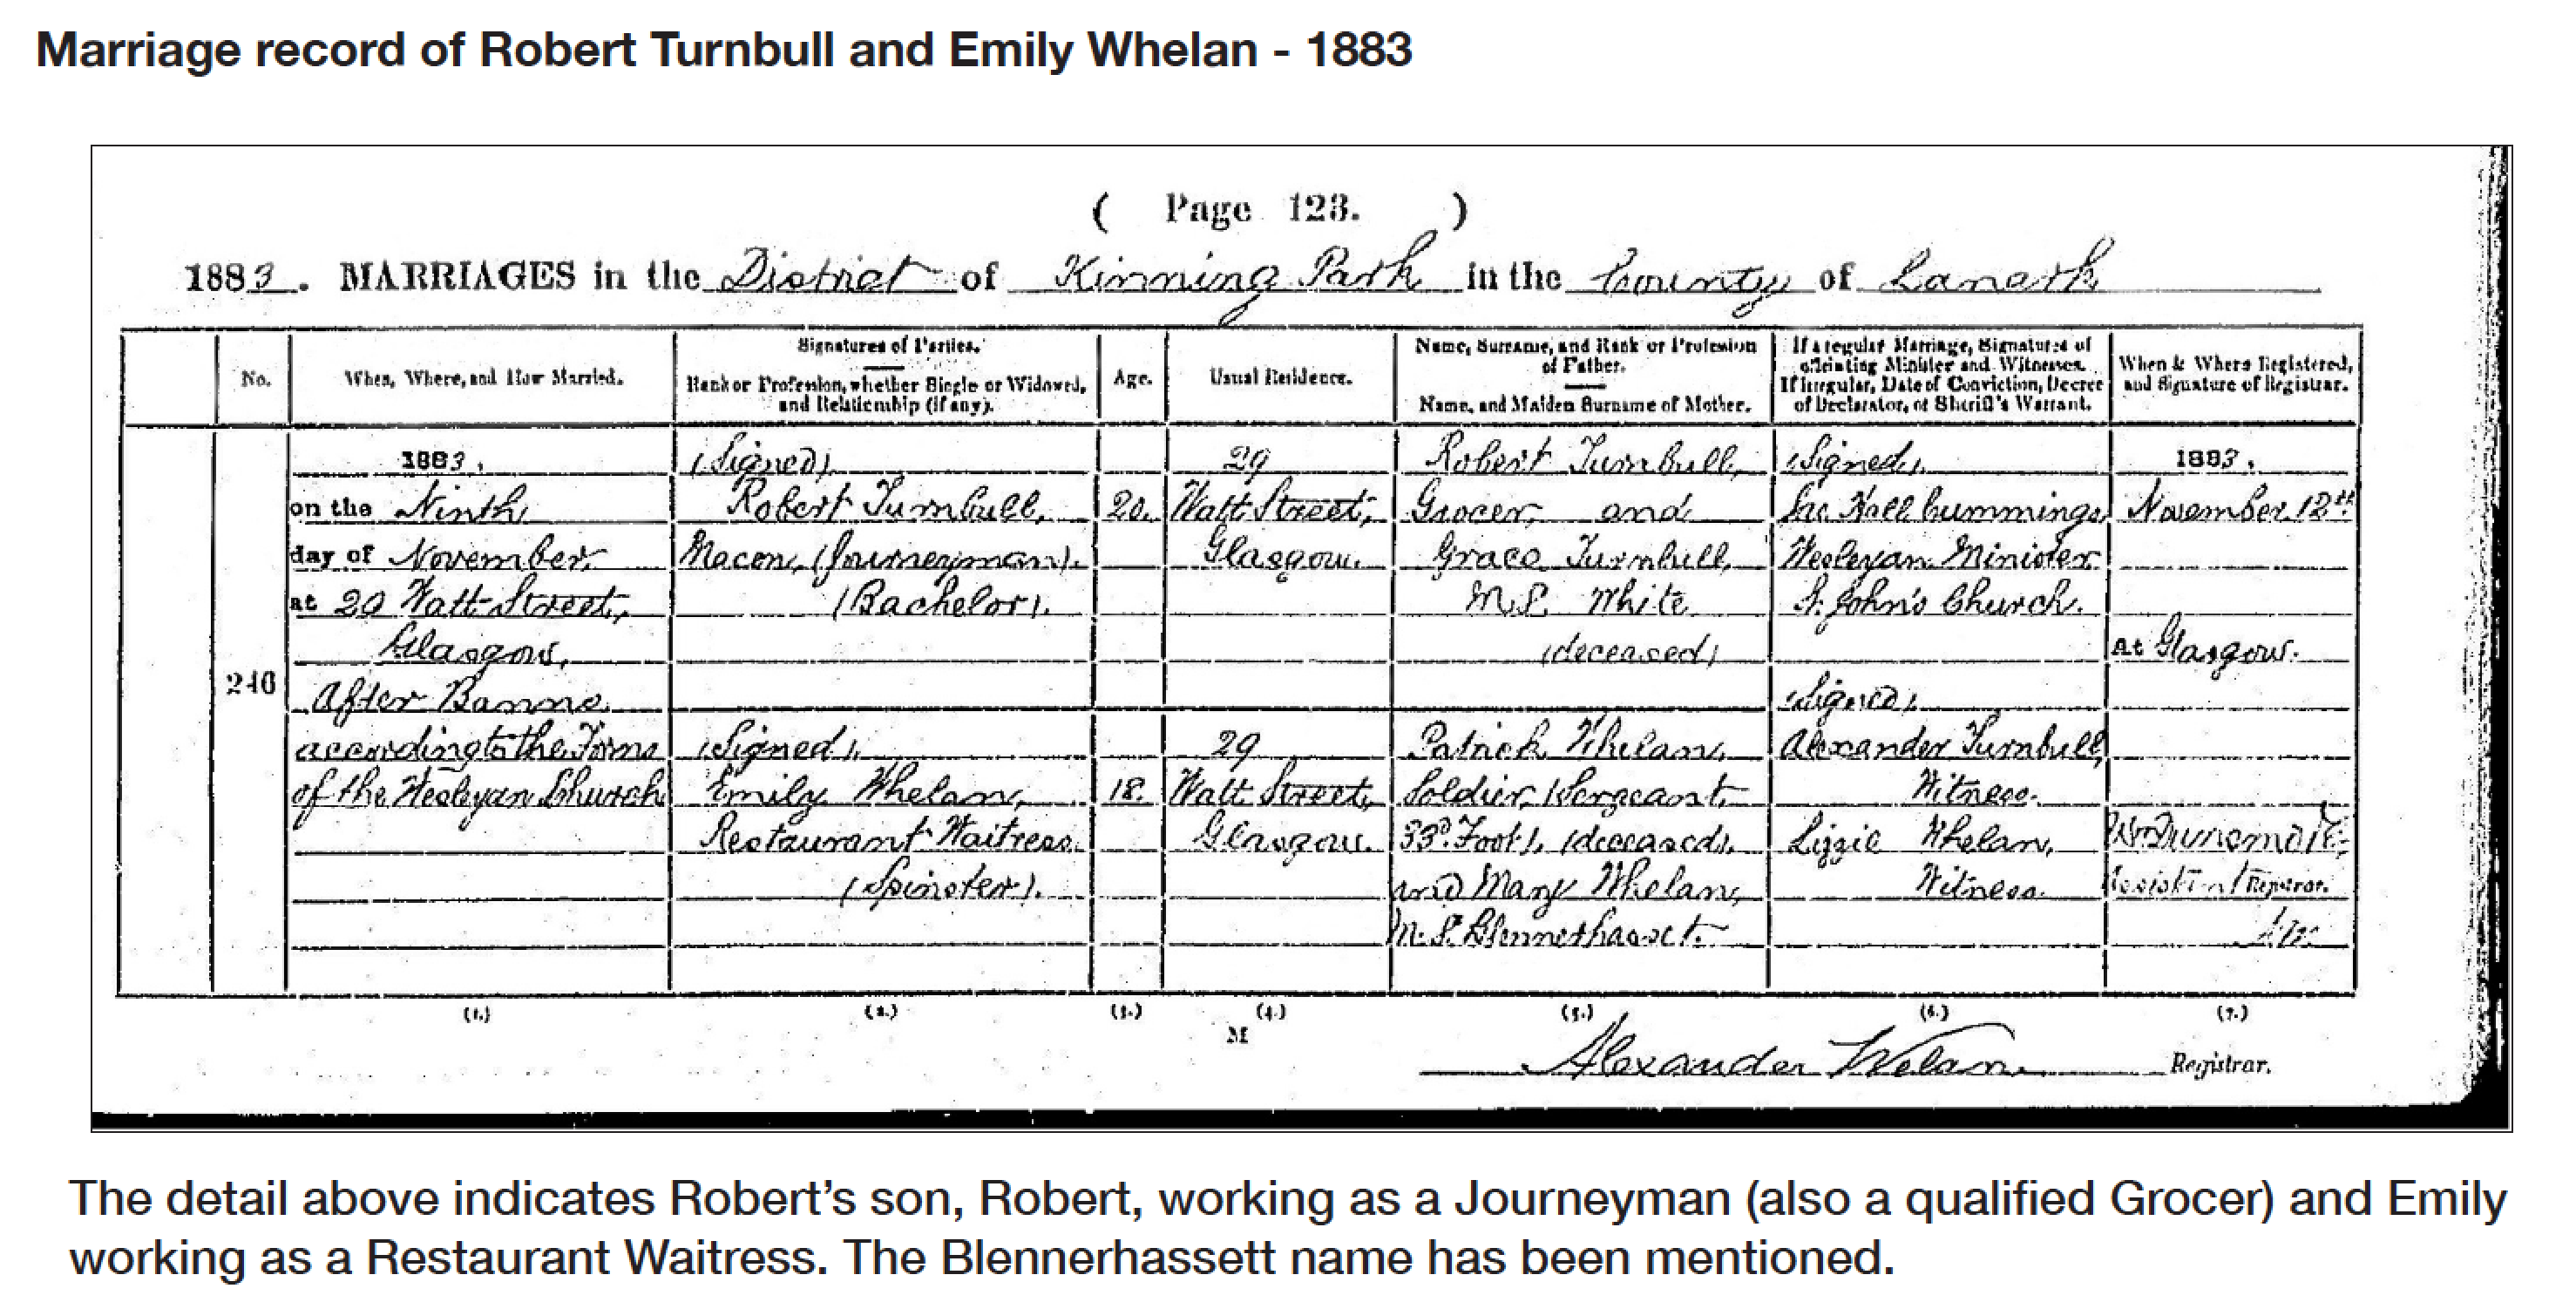 Marriage record of Robert Turnbull and Emily Whelan - 1883
( Page 123. )
1883. MARRIAGES in the District of Kinning Park in the County of Lanark
No.
When, Where, and How Married.
Signatures of Parties.
Rank or Profession, whether Single or Widowed,
and Relationship (if any).
Age.
Usual Residence.
Name, Surname, and Rank or Profession
of Father.
Name, and Maiden Surname of Mother.
If a regular Marriage, Signatures of
officiating Minister and Witnesses.
If irregular, Date of Conviction, Decree
of Declarator, or Sheriff's Warrant.
When & Where Registered,
and Signature of Registrar.
240
1883,
on the Ninth
day of November
at 29 Watt Street,
Glasgow,
After Banns
according to the Forms
of the Wesleyan Church
(Signed)
Robert Turnbull,
Mason, (Journeyman).
(Bachelor).
(Signed),
Emily Whelan,
Restaurant Waitress
(Spinster).
20.
18.
29
Watt Street,
Glasgow.
29
Watt Street,
Glasgow.
Robert Turnbull,
Grocer, and
Grace Turnbull,
M.S. White
(deceased)
Patrick Whelan,
Soldier, (Sergeant,
33d Foot), (deceased),
and Mary Whelan,
M.S. Blennerhasset.
(Signed),
Hall Cummings
Wesleyan Minister
St. John's Church.
(Signed),
Alexander Turnbull,
Witness.
Lizzie Whelan,
Witness.
1883,
November 12th
At Glasgow.
Wm
Assistant Registrar.
(1.) (2.) (3.) (4.) (5.) (6.) (7.)
M
Alexander Registrar.
The detail above indicates Robert’s son, Robert, working as a Journeyman (also a qualified Grocer) and Emily
working as a Restaurant Waitress. The Blennerhassett name has been mentioned.